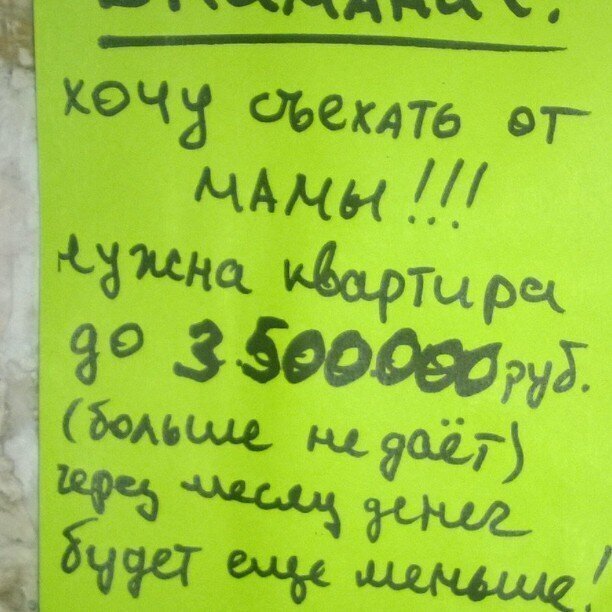 Внимание!
хочу съехать от
мамы!!!
нужна квартира
до 3.500.000 руб.
(больше не даёт)
через месяц денег
будет еще меньше!